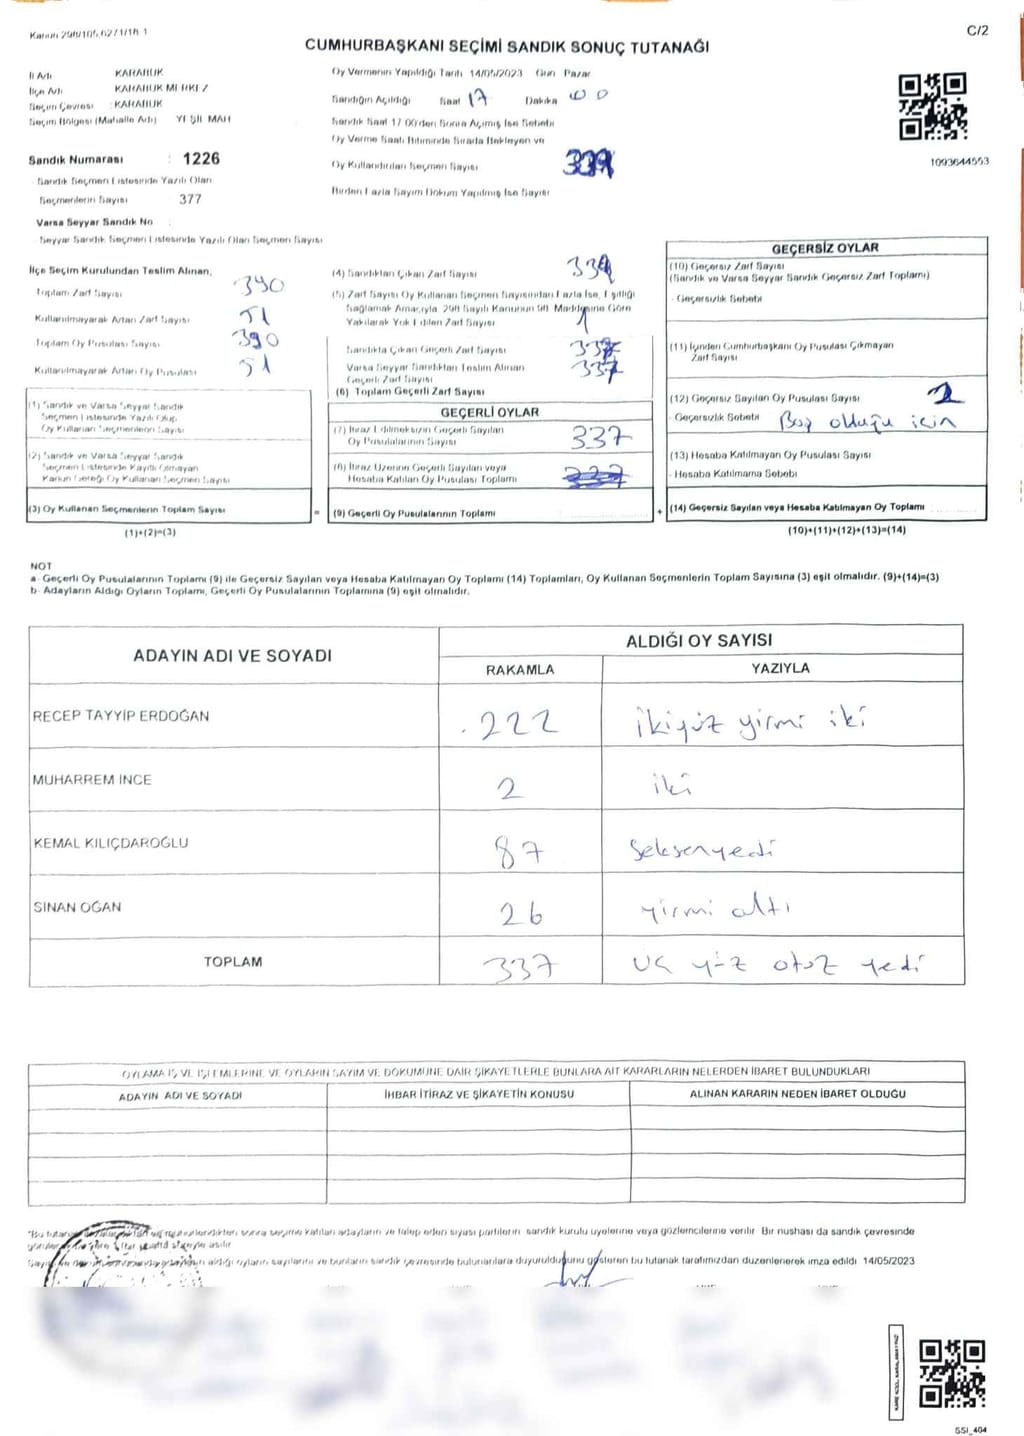 Kanun 298/105,6271/18-1
C/2
CUMHURBAŞKANI SEÇİMİ SANDIK SONUÇ TUTANAĞI
İl Adı KARABÜK
İlçe Adı KARABÜK MERKEZ
Seçim Çevresi : KARABÜK
Seçim Bölgesi (Mahalle Adı) YEŞİL MAH
Sandık Numarası : 1226
Sandık Seçmen Listesinde Yazılı Olan
Seçmenlerin Sayısı 377
Varsa Seyyar Sandık No :
Seyyar Sandık Seçmen Listesinde Yazılı Olan Seçmen Sayısı
Oy Vermenin Yapıldığı Tarih 14/05/2023 Gün Pazar
Sandığın Açıldığı Saat 17 Dakika 00
Sandık Saat 17:00'den Sonra Açılmış İse Sebebi
Oy Verme Saati Bitiminde Sırada Bekleyen ve
Oy Kullandırılan Seçmen Sayısı
Birden Fazla Sayım Döküm Yapılmış İse Sayısı
1093644553
İlçe Seçim Kurulundan Teslim Alınan,
Toplam Zarf Sayısı 390
Kullanılmayarak Artan Zarf Sayısı 51
Toplam Oy Pusulası Sayısı 390
Kullanılmayarak Artan Oy Pusulası 51
(1) Sandık ve Varsa Seyyar Sandık
Seçmen Listesinde Yazılı Olup
Oy Kullanan Seçmenlerin Sayısı
(2) Sandık ve Varsa Seyyar Sandık
Seçmen Listesinde Kayıtlı Olmayan
Kanun Gereği Oy Kullanan Seçmen Sayısı
(3) Oy Kullanan Seçmenlerin Toplam Sayısı
(1)+(2)=(3)
=
(4) Sandıktan Çıkan Zarf Sayısı
(5) Zarf Sayısı Oy Kullanan Seçmen Sayısından Fazla İse, Eşitliği
Sağlamak Amacıyla 298 Sayılı Kanunun 98. Maddesine Göre
Yakılarak Yok Edilen Zarf Sayısı 1
Sandıkta Çıkan Geçerli Zarf Sayısı
Varsa Seyyar Sandıktan Teslim Alınan
Geçerli Zarf Sayısı 337
(6) Toplam Geçerli Zarf Sayısı
GEÇERLİ OYLAR
(7) İtiraz Edilmeksizin Geçerli Sayılan
Oy Pusulalarının Sayısı 337
(8) İtiraz Üzerine Geçerli Sayılan veya
Hesaba Katılan Oy Pusulası Toplamı 337
(9) Geçerli Oy Pusulalarının Toplamı
+
GEÇERSİZ OYLAR
(10) Geçersiz Zarf Sayısı
(Sandık ve Varsa Seyyar Sandık Geçersiz Zarf Toplamı)
- Geçersizlik Sebebi
(11) İçinden Cumhurbaşkanı Oy Pusulası Çıkmayan
Zarf Sayısı
(12) Geçersiz Sayılan Oy Pusulası Sayısı
- Geçersizlik Sebebi Boş olduğu için
(13) Hesaba Katılmayan Oy Pusulası Sayısı
- Hesaba Katılmama Sebebi
(14) Geçersiz Sayılan veya Hesaba Katılmayan Oy Toplamı
(10)+(11)+(12)+(13)=(14)
NOT
a- Geçerli Oy Pusulalarının Toplamı (9) ile Geçersiz Sayılan veya Hesaba Katılmayan Oy Toplamı (14) Toplamları, Oy Kullanan Seçmenlerin Toplam Sayısına (3) eşit olmalıdır. (9)+(14)=(3)
b- Adayların Aldığı Oyların Toplamı, Geçerli Oy Pusulalarının Toplamına (9) eşit olmalıdır.
ADAYIN ADI VE SOYADI ALDIĞI OY SAYISI
RAKAMLA YAZIYLA
RECEP TAYYİP ERDOĞAN 222 ikiyüz yirmi iki
MUHARREM İNCE 2 iki
KEMAL KILIÇDAROĞLU 87 Seksenyedi
SİNAN OĞAN 26 yirmi altı
TOPLAM 337 üç yüz otuz yedi
OYLAMA İŞ VE İŞLEMLERİNE VE OYLARIN SAYIM VE DÖKÜMÜNE DAİR ŞİKAYETLERLE BUNLARA AİT KARARLARIN NELERDEN İBARET BULUNDUKLARI
ADAYIN ADI VE SOYADI İHBAR İTİRAZ VE ŞİKAYETİN KONUSU ALINAN KARARIN NEDEN İBARET OLDUĞU
sonra seçime katılan adayların ve talep eden siyasi partilerin sandık kurulu üyelerine veya gözlemcilerine verilir. Bir nüshası da sandık çevresinde
aldığı oyların sayılarını ve bunların sandık çevresinde bulunanlara duyurulduğunu gösteren bu tutanak tarafımızdan düzenlenerek imza edildi 14/05/2023
SSI_404